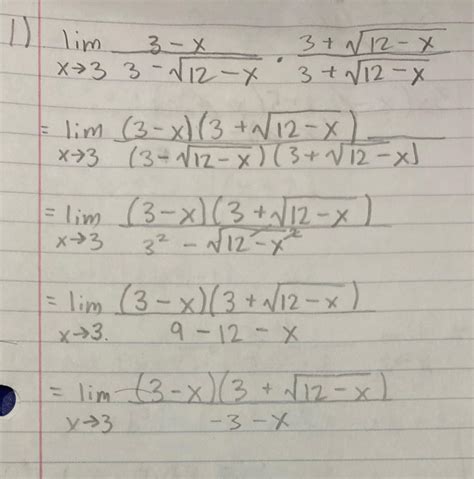 1) lim x→3 (3 - x)/(3 - √(12 - x)) · (3 + √(12 - x))/(3 + √(12 - x))
= lim x→3 ((3 - x)(3 + √(12 - x)))/((3 - √(12 - x))(3 + √(12 - x)))
= lim x→3 ((3 - x)(3 + √(12 - x)))/(3² - √(12 - x)²)
= lim x→3. ((3 - x)(3 + √(12 - x)))/(9 - 12 - x)
= lim x→3 ((3 - x)(3 + √(12 - x)))/(-3 - x)